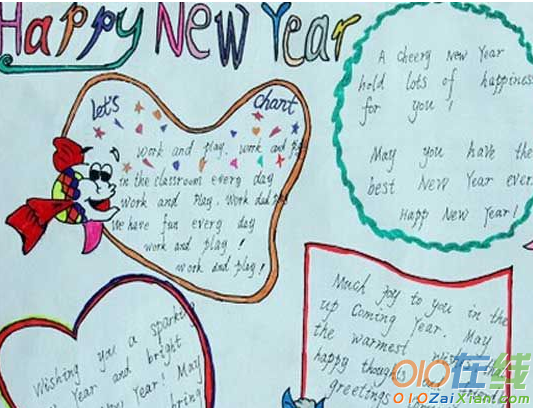 Happy New Year
let's chart
work and play. work and
in the classroom every day
work and Play. Work and
we have fun every day
work and play!
work and play!
A cheery New Year
hold lots of happiness
for you!
May you have the
best New Year ever.
Happy New Year!
Much joy to you in the
up coming Year. May
the warmest
happy thoughts and
greetings
Wishing you a
Year and bright
Year. May
bring
OIO在线
OIOZaiXian.com